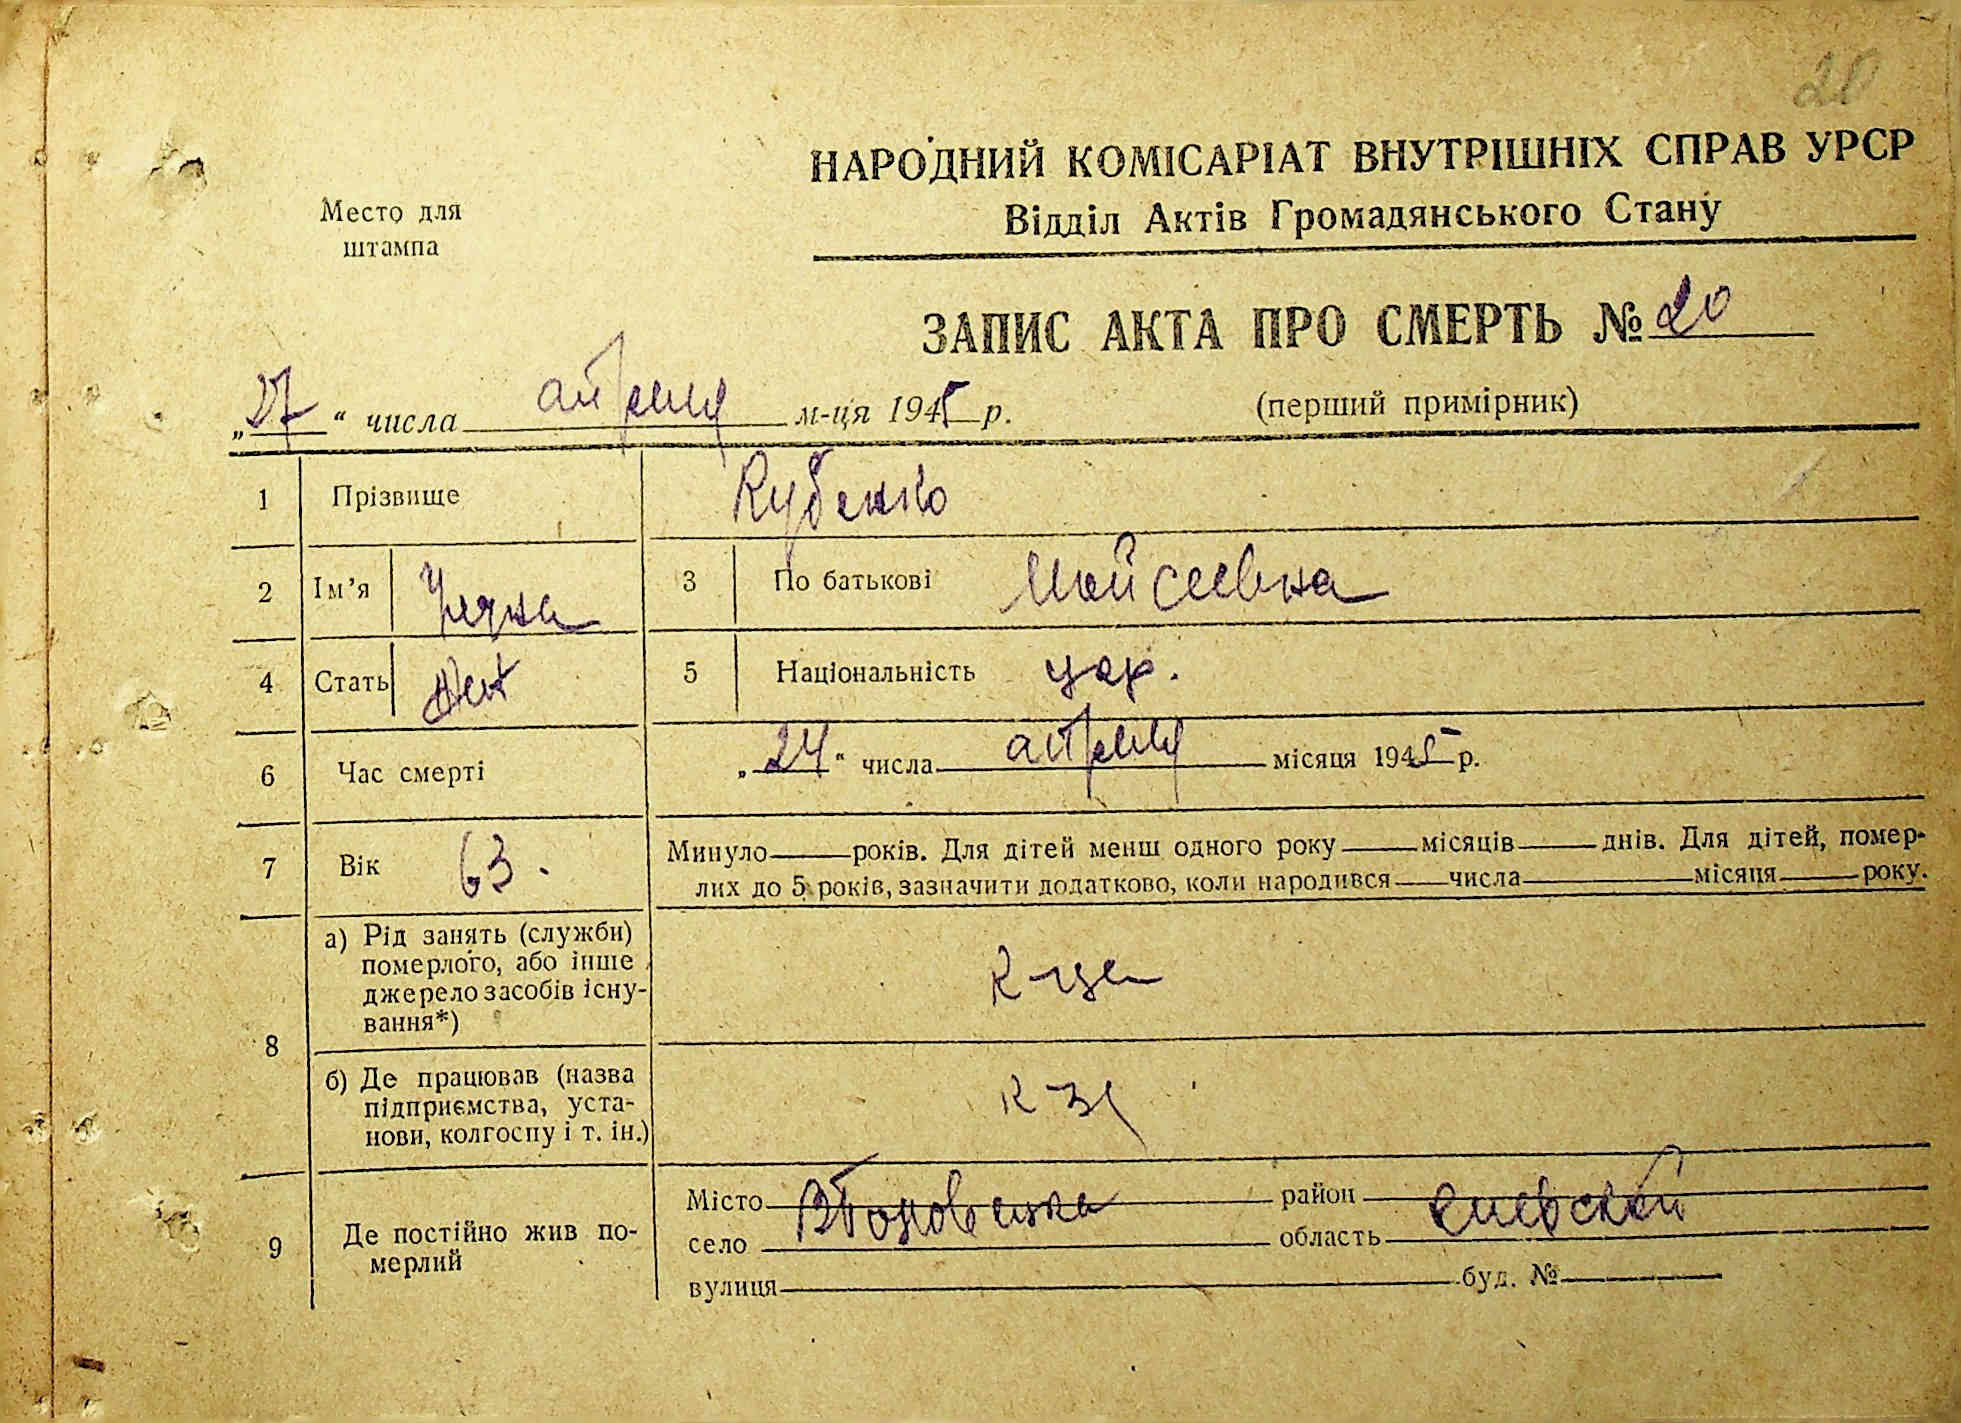 20
НАРОДНИЙ КОМІСАРІАТ ВНУТРІШНІХ СПРАВ УРСР
Відділ Актів Громадянського Стану
Место для
штампа
ЗАПИС АКТА ПРО СМЕРТЬ № 20
(перший примірник)
„27“ числа апреля м-ця 1945 р.
1 Прізвище Кубенко
2 Ім’я 3 По батькові Мойсеевна
4 Стать жен 5 Національність укр.
6 Час смерті „24“ числа апреля місяця 1945 р.
7 Вік 63. Минуло років. Для дітей менш одного року місяців днів. Для дітей, помер-
лих до 5 років, зазначити додатково, коли народився числа місяця року.
8 а) Рід занять (служби)
померлого, або інше
джерело засобів існу-
вання*)
к-ца
б) Де працював (назва
підприємства, уста-
нови, колгоспу і т. ін.)
к-з
9 Де постійно жив по-
мерлий
Місто район
село область
вулиця буд. №